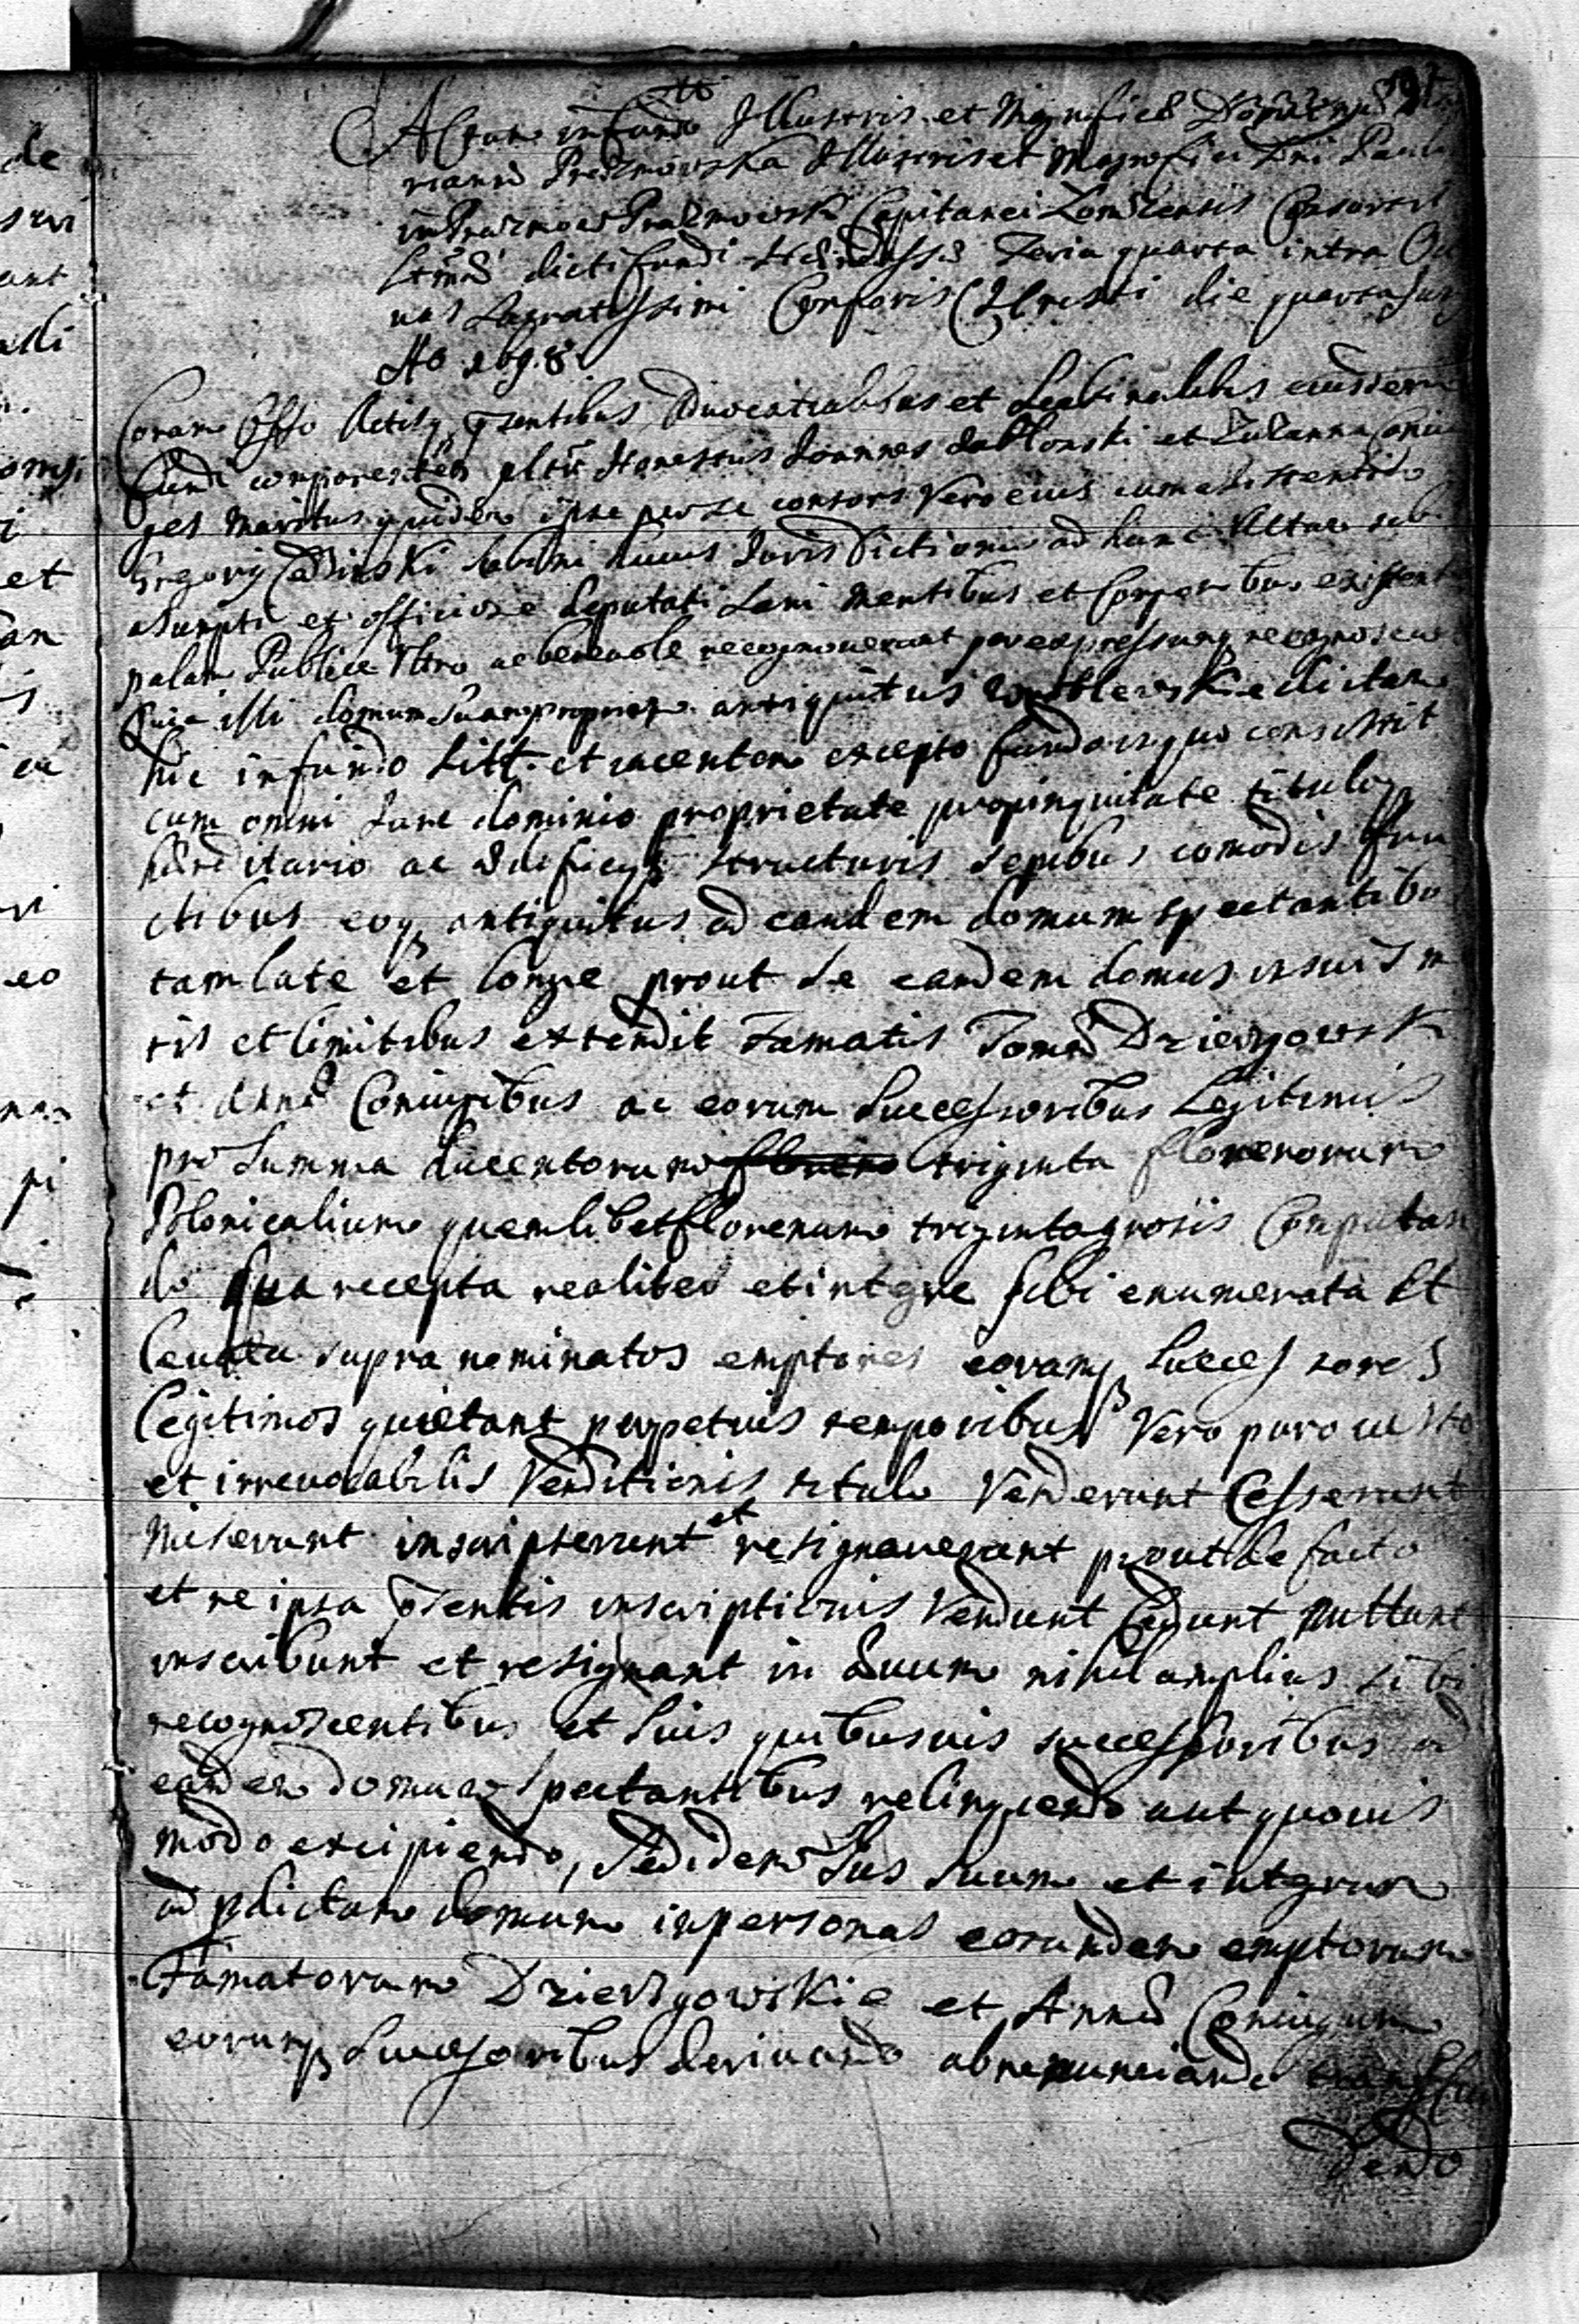 Actum in fundo Illustris et Magnificæ Dnæ
Prazmowska Illustris et Magnifici Dni Pauli
in Prazmow Prazmowski Capitanei Lomzensis Consortis
dicti fundi Hæredissæ Feria quarta intra Octa
uas Sacratissimi Corporis Christi die quarta Juny
Ao 169.8
Coram Offo Actisq psentibus Aduocatialibus et Scabinalibus eiusdem
fundi comparentes psltr Honestus Joannes Jablonski et Zuzanna Coniu
ges Maritus quidem ipse per se consors Vero eius cum assistentia
Gregorij Scabini huius Jurisdictionis ad hunc Actum sibi
assumpti et officiose deputati Sani Mentibus et Corporibus existent
palam Publice Vltro ac beneuole recognouerunt per expressumq recognoscunt
Quia illi domum Suam propriam antiquitus dictam
hic in fundo Sitt. et iacentem excepto fundo in quo consistit
cum omni Jure dominio proprietate propinquitate titulo
hæreditario ac ædificijs structuris sepibus comodis fru
ctibus eoq antiquitus ad eandem domum spectantibus
tam late et longe prout se eandem domus in suis m
tis et limitibus extendit Famatis Tomæ Dzierzgowsk
et Annæ Coniugibus ac eorum Successoribus Legitimis
pro Summa ducentorum floreno triginta florenorum
Polonicalium quemlibet florenum triginta grosiis Computan
do Qua recepta realiter et integre sibi enumerata Et
leuata supra nominatos emptores eorumq Successores
legitimos quietant perpetuis temporibus Vero puro iusto
et irreuocabilis Venditionis titulo Venderunt Cesserunt
Miserunt inscripserunt et resignauerunt prout de facto
et re ipsa psentis inscriptionis Vendunt Cedunt Mittunt
inscribunt et resignant in Suum nihil amplius sibi
recognoscentibus et Suis quibusuis successoribus ad
eandem domum Spectantibus relinquendo aut quouis
modo excipiendo, Sed idem Jus Suum et integrum
ad pdictam domum in personas eorundem emptorum
Famatorum Dzierzgowskie et Annæ Coniugum
eorumq Successoribus deriuando abrenunciando transfun
dendo